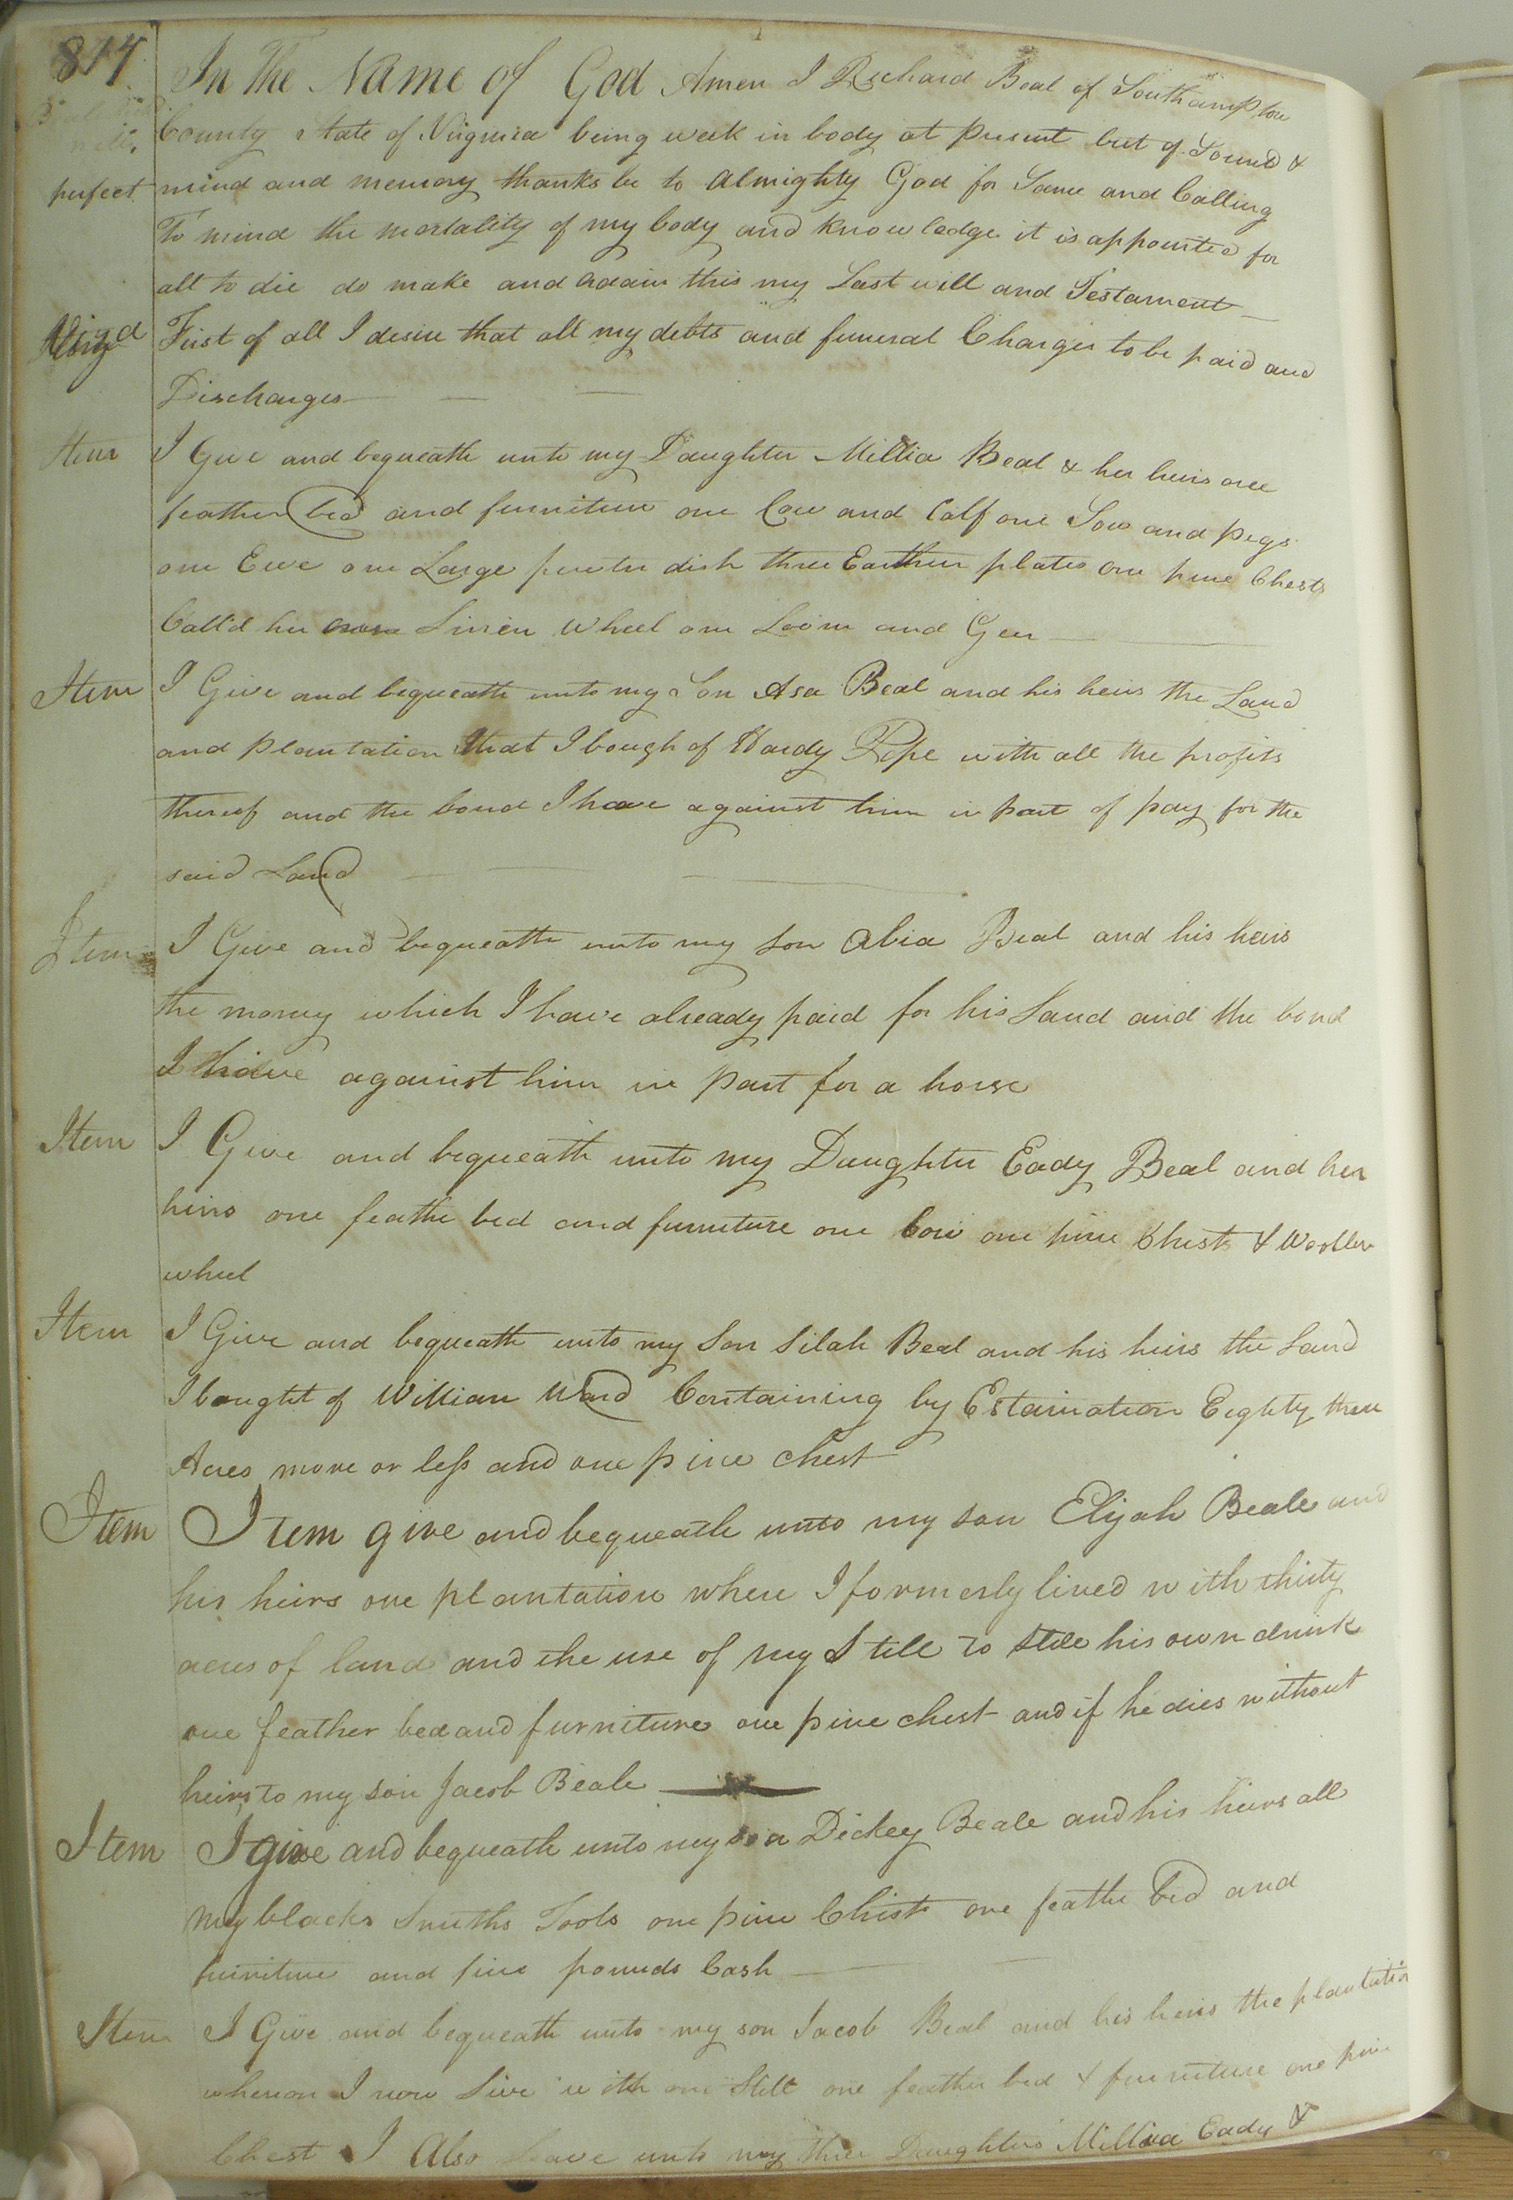 814
In The Name of God Amen I Richard Beal of Southampton
County State of Virginia being week in body at present but of Sound &
perfect mind and memory thanks be to Almighty God for Same and Calling
To mind the mortality of my body and knowledge it is appointed for
all to die do make and adain this my Last will and Testament
First of all I desire that all my debts and funeral Charges to be paid and
Discharges
Item I Give and bequeath unto my Daughter Millia Beal & her heirs one
feather bed and furniture one Cow and Calf one Sow and pegs
one Ewe one Large pewter dish three Earthen plates one pine Chests
Call'd her own Linen Wheel one Loom and Gear
Item I Give and bequeath unto my Son Asa Beal and his heirs the Land
and plantation that I bough of Hardy Pope with all the profits
thereof and the bond I have against him in part of pay for the
said Land
Item I Give and bequeath unto my son Abia Beal and his heirs
the money which I have already paid for his Land and the bond
I have against him in part for a horse
Item I Give and bequeath unto my Daughter Eady Beal and her
heirs one feathe bed and furniture one Cow one pine Chests & Woollen
wheel
Item I Give and bequeath unto my Son Silah Beal and his heirs the Land
I bought of William Ward Containing by Estaination Eighty three
Acres more or less and one pine chest
Item Item give and bequeath unto my son Elijah Beale and
his heirs one plantation where I formerly lived with thirty
acres of land and the use of my Still to still his own drink
one feather bed and furniture one pine chest and if he dies without
heirs to my son Jacob Beale
Item I give and bequeath unto my son Dickey Beale and his heirs all
my blacks Smiths Tools one pine Chist one feathe bed and
furniture and five pounds Cash
Item I Give and bequeath unto my son Jacob Beal and his heirs the plantation
whereon I now Live with one Still one feather bed & furniture one pine
Chest I Also leave unto my three Daughters Millia Eady &